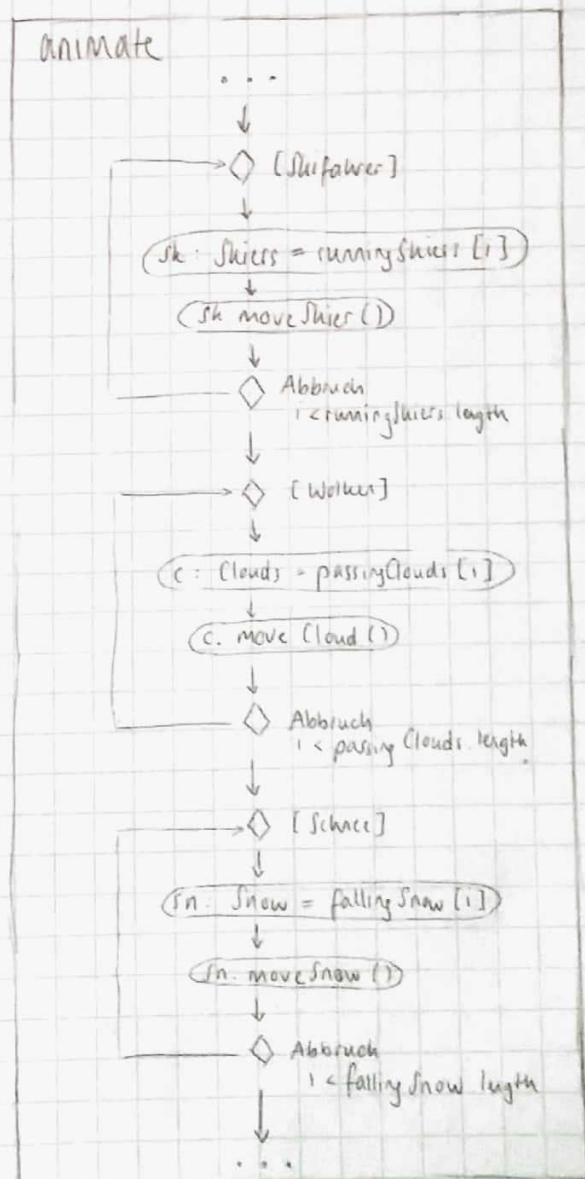 animate
...
[Skifahrer]
sk: Skiers = runningSkiers [i]
sk moveSkier ()
Abbruch
i < runningSkiers length
[Wolken]
c: Clouds = passingClouds [i]
c. move Cloud ()
Abbruch
i < passing Clouds. length
[Schnee]
sn: Snow = falling Snow [i]
sn. moveSnow ()
Abbruch
i < falling Snow length
...